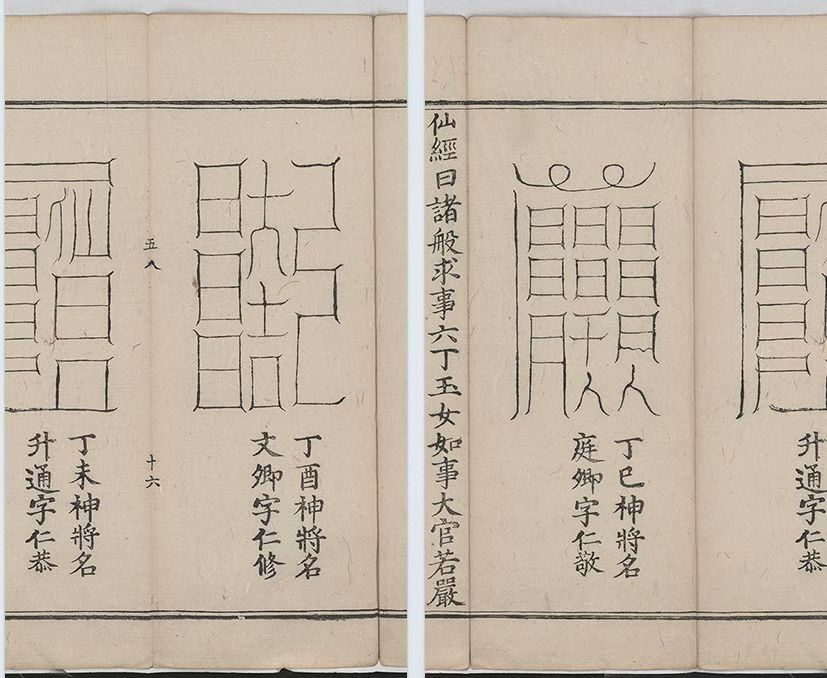 升通字仁恭
丁巳神將名
庭卿字仁敬
仙經曰諸般求事六丁玉女如事大官若嚴
丁酉神將名
文卿字仁修
五八
十六
丁未神將名
升通字仁恭